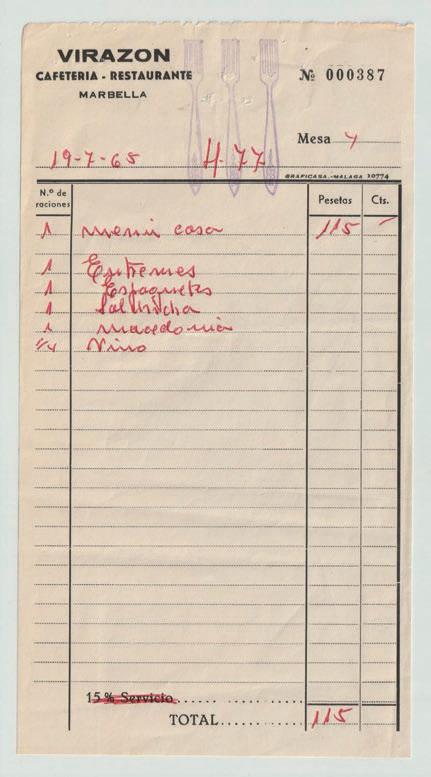 VIRAZON
CAFETERIA - RESTAURANTE
MARBELLA
Nº 000387
Mesa 4
19-7-65 H. 77
GRAFICASA.-MALAGA 10774
N.º de raciones Pesetas Cts.
1 menú casa 115
1 Entremes
1 Espaguetis
1 Salchicha
1 macedonia
1/4 Vino
15 % Servicio
TOTAL 115